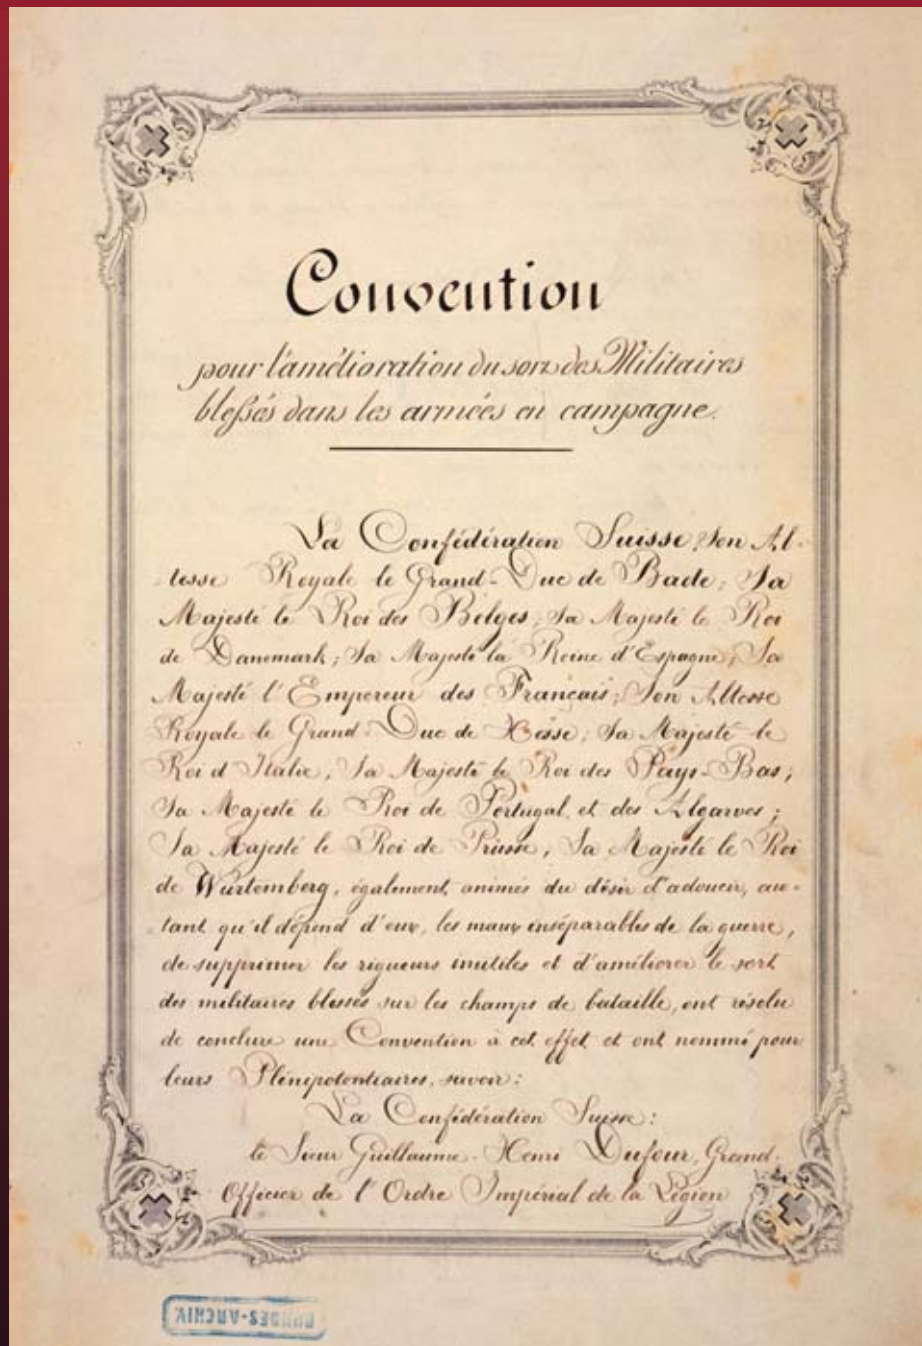 Convention
pour l'amélioration du sort des Militaires
bleſsés dans les armées en campagne.
La Confédération Suisse; Son Al-
tesse Royale le Grand-Duc de Bade; Sa
Majesté le Roi des Belges; Sa Majesté le Roi
de Danemark; Sa Majesté la Reine d'Espagne; Sa
Majesté l'Empereur des Français; Son Altesse
Royale le Grand-Duc de Hesse; Sa Majesté le
Roi d'Italie; Sa Majesté le Roi des Pays-Bas;
Sa Majesté le Roi de Portugal et des Algarves;
Sa Majesté le Roi de Prusse, Sa Majesté le Roi
de Würtemberg, également animés du désir d'adoucir, au-
tant qu'il dépend d'eux, les maux inséparables de la guerre,
de supprimer les rigueurs inutiles et d'améliorer le sort
des militaires blessés sur les champs de bataille, ont résolu
de conclure une Convention à cet effet et ont nommé pour
leurs Plénipotentiaires, savoir:
La Confédération Suisse:
le Sieur Guillaume-Henri Dufour, Grand
Officier de l'Ordre Impérial de la Légion
BUNDES-ARCHIV.